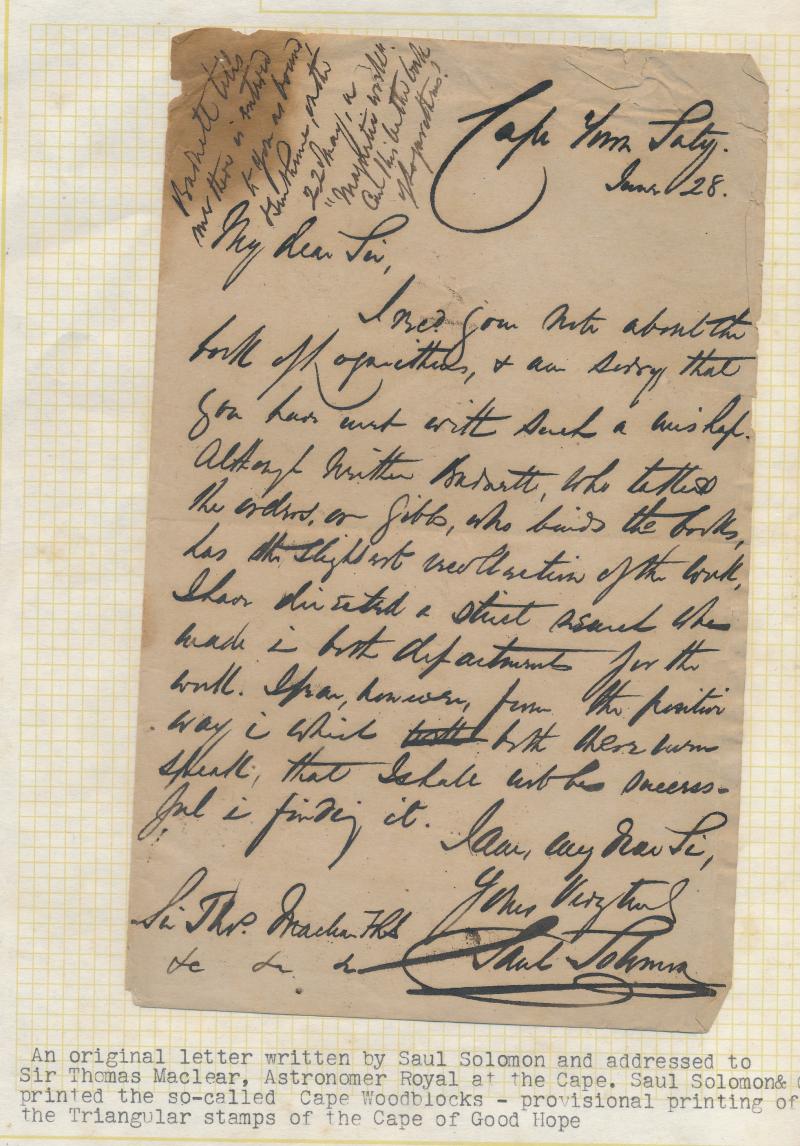 Barnett tells
me there is entered
to you as bound
& returned, on the
22d May, a
"Magnetic work".
Can this be the book
of Logarithms?
Cape Town Saty.
June 28.
My dear Sir,
I recd your note about the
book of Logarithms, & am sorry that
you have met with such a mishap.
Although neither Barnett, who takes
the orders, or Gibbs, who binds the books,
has the slightest recollection of the work,
I have directed a strict search to be
made in both departments for the
work. I fear, however, from the positive
way in which both these men
speak, that I shall not be success-
ful in finding it.
I am, my dear Sir,
Yours very truly
Saul Solomon
Sir Thos. Maclear
&c &c &c
An original letter written by Saul Solomon and addressed to
Sir Thomas Maclear, Astronomer Royal at the Cape. Saul Solomon&
printed the so-called Cape Woodblocks - provisional printing of
the Triangular stamps of the Cape of Good Hope